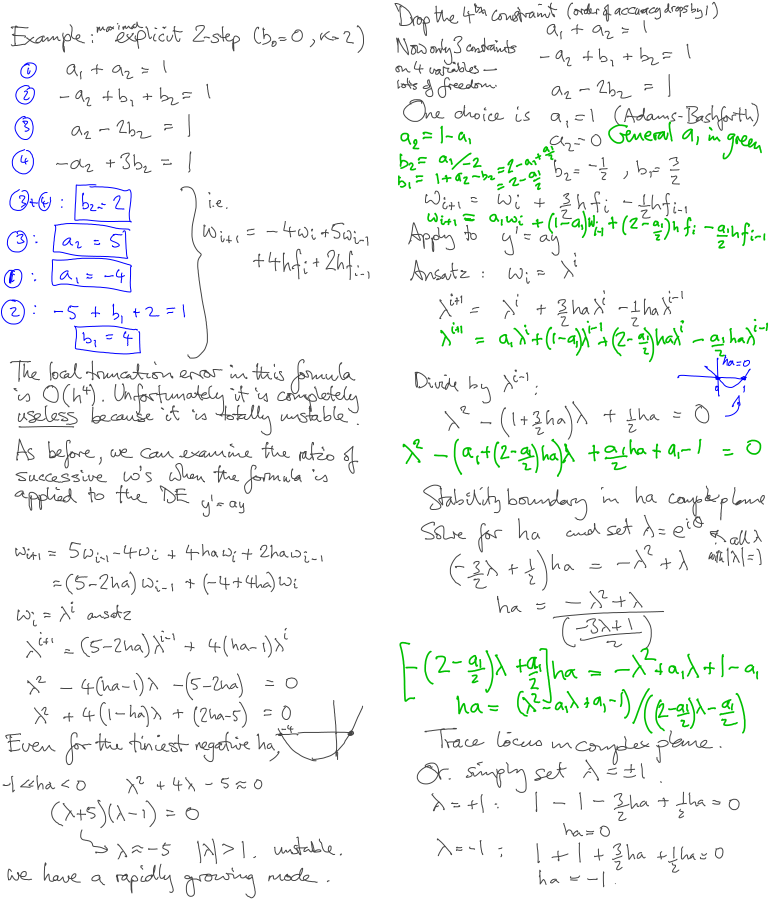 Example: maximal explicit 2-step (b₀=0, k=2)
① a₁ + a₂ = 1
② -a₂ + b₁ + b₂ = 1
③ a₂ - 2b₂ = 1
④ -a₂ + 3b₂ = 1
③+④: b₂ = 2
③: a₂ = 5
①: a₁ = -4
②: -5 + b₁ + 2 = 1
b₁ = 4
i.e.
wᵢ₊₁ = -4wᵢ + 5wᵢ₋₁
+ 4hfᵢ + 2hfᵢ₋₁
The local truncation error in this formula
is O(h⁴). Unfortunately it is completely
useless because it is totally unstable.
As before, we can examine the ratio of
successive w's when the formula is
applied to the DE y' = ay
wᵢ₊₁ = 5wᵢ₋₁ - 4wᵢ + 4hawᵢ + 2hawᵢ₋₁
= (5-2ha)wᵢ₋₁ + (-4+4ha)wᵢ
wᵢ = λⁱ ansatz
λⁱ⁺¹ = (5-2ha)λⁱ⁻¹ + 4(ha-1)λⁱ
λ² - 4(ha-1)λ - (5-2ha) = 0
λ² + 4(1-ha)λ + (2ha-5) = 0
-4
Even for the tiniest negative ha,
-1 << ha < 0 λ² + 4λ - 5 ≈ 0
(λ+5)(λ-1) = 0
λ ≈ -5 |λ| > 1. unstable.
we have a rapidly growing mode.
Drop the 4th constraint (order of accuracy drops by 1)
Now only 3 constraints
on 4 variables –
lots of freedom
a₁ + a₂ = 1
-a₂ + b₁ + b₂ = 1
a₂ - 2b₂ = 1
One choice is a₁ = 1 (Adams-Bashforth)
a₂ = 0 General a₁ in green
a₂ = 1-a₁
b₂ = a₁/-2
b₁ = 1 + a₂ - b₂ = 2 - a₁ + a₁/2
= 2 - a₁/2
b₂ = -1/2, b₁ = 3/2
wᵢ₊₁ = wᵢ + 3/2 hfᵢ - 1/2 hfᵢ₋₁
wᵢ₊₁ = a₁wᵢ + (1-a₁)wᵢ₋₁ + (2-a₁/2)hfᵢ - a₁/2 hfᵢ₋₁
Apply to y' = ay
Ansatz: wᵢ = λⁱ
λⁱ⁺¹ = λⁱ + 3/2 haλⁱ - 1/2 haλⁱ⁻¹
λⁱ⁺¹ = a₁λⁱ + (1-a₁)λⁱ⁻¹ + (2-a₁/2)haλⁱ - a₁/2 haλⁱ⁻¹
ha=0
Divide by λⁱ⁻¹:
λ² - (1+3/2 ha)λ + 1/2 ha = 0
λ² - (a₁+(2-a₁/2)ha)λ + a₁/2 ha + a₁-1 = 0
Stability boundary in ha complex plane
Solve for ha and set λ = e^{iθ}
all λ
with |λ|=1
(-3/2 λ + 1/2)ha = -λ² + λ
ha = (-λ² + λ)/((-3λ+1)/2)
[-(2-a₁/2)λ + a₁/2]ha = -λ² + a₁λ + 1 - a₁
ha = (λ² - a₁λ + a₁-1)/((2-a₁/2)λ - a₁/2)
Trace locus in complex plane.
Or simply set λ = ±1.
λ = +1: 1 - 1 - 3/2 ha + 1/2 ha = 0
ha = 0
λ = -1: 1 + 1 + 3/2 ha + 1/2 ha = 0
ha = -1.